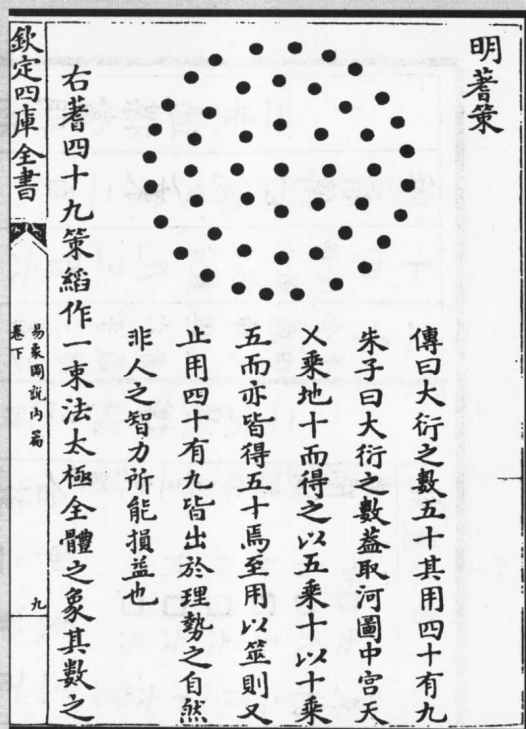 明蓍策
傳曰大衍之數五十其用四十有九
朱子曰大衍之數葢取河圖中宮天
乂乘地十而得之以五乘十以十乘
五而亦皆得五十焉至用以筮則又
止用四十有九皆出於理勢之自然
非人之智力所能損益也
右蓍四十九策縚作一束法太極全體之象其數之
欽定四庫全書
易象圖說内篇
卷下
九